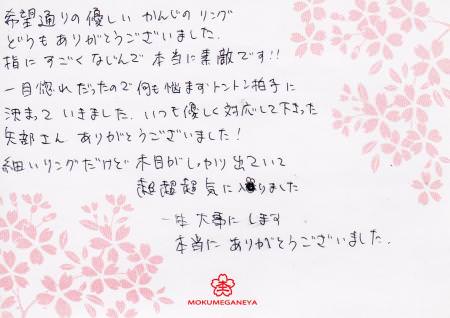 希望通りの優しい かんじのリング
どうもありがとうございました.
指にすごくなじんで 本当に素敵です!!
一目惚れだったので何も悩まずトントン拍子に
決まって いきました. いつも優しく対応して下さった
矢部さん ありがとうございました!
細いリングだけど 木目がしっかり出ていて
超超超気に入りました
一生 大事に します
本当に ありがとうございました.
MOKUMEGANEYA